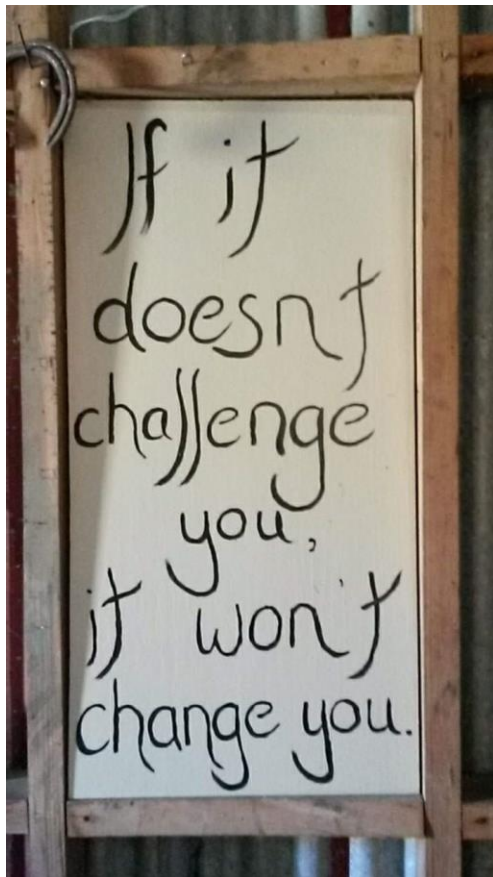 If it
doesnt
challenge
you,
it won't
change you.